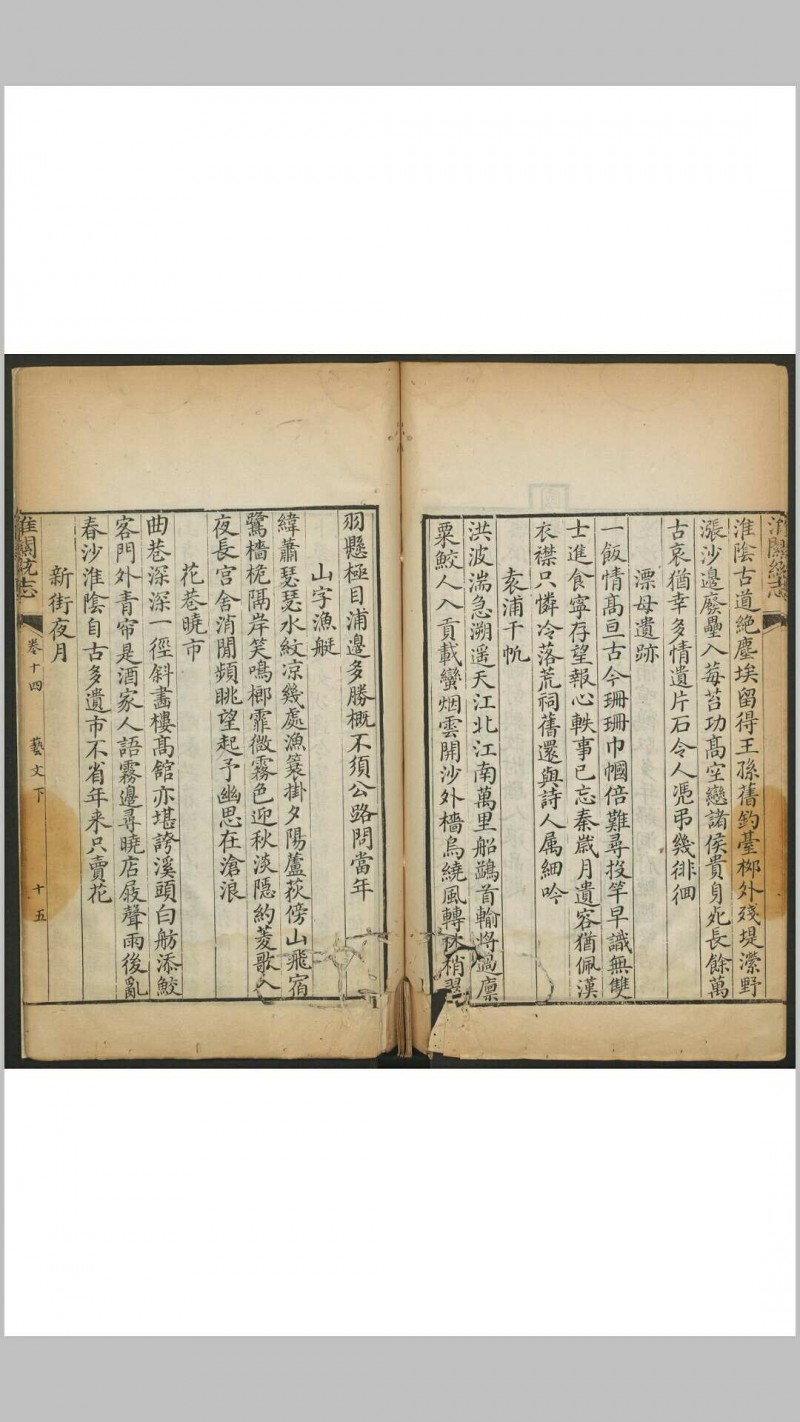 淮陰古道絶塵埃留得王孫舊釣臺栁外殘堤瀠野
漲沙邊廢壘入莓苔功髙空戀諸侯貴身死長餘萬
古哀猶幸多情遺片石令人憑弔幾徘徊
漂母遺跡
一飯情髙亘古今珊珊巾幗倍難尋投竿早識無雙
士進食寧存望報心軼事已忘秦歲月遺容猶佩漢
衣襟只憐冷落荒祠舊還與詩人属細吟
袁浦千帆
洪波湍急溯遥天江北江南萬里船鷁首輸将過廪
粟鮫人入貢載蠻烟雲開沙外檣烏繞風轉 梢翠
羽懸極目浦邊多勝概不須公路問當年
山字漁艇
緯蕭瑟瑟水紋凉幾處漁簑掛夕陽蘆荻傍山飛宿
鷺檣桅隔岸笑鳴榔霏微霧色迎秋淡隱約菱歌入
夜長官舍消閒頻眺望起予幽思在滄浪
花巷曉市
曲巷深深一徑斜畵樓髙館亦堪誇溪頭白舫添鮫
客門外青帘是酒家人語霧邊尋曉店屐聲雨後亂
春沙淮陰自古多遺市不省年来只賣花
新街夜月
淮關統志
卷十四
藝文下
十五